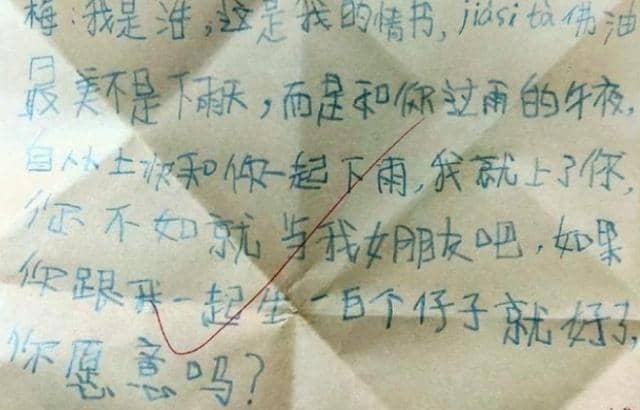 梅:我是洋,这是我的情书,jiásī tà佛油
最美不是下雨天,而是和你过雨的午夜,
自从上次和你一起下雨,我就上了你,
你不如就当我女朋友吧,如果
你跟我一起生一百个仔子就好了,
你愿意吗?